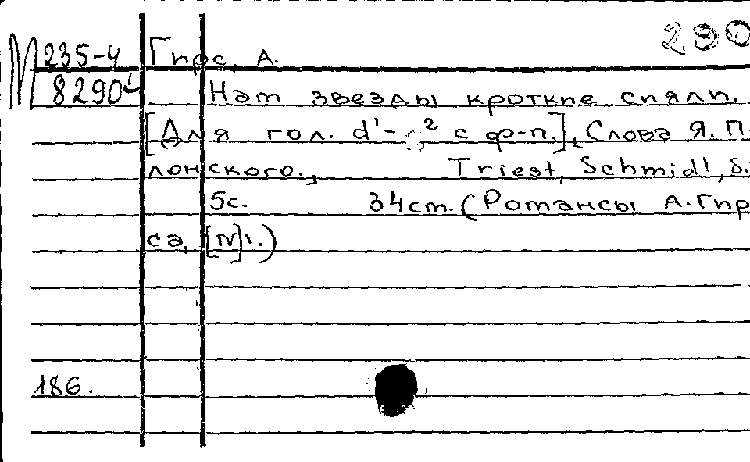 290
М 235-4 Гирс, А.
8290 Нам звезды кроткие сияли.
[Для гол. d¹- ² с ф-п.], Слова Я. П.
лонского., Triest, Schmidl, б.
5с. 34cm. (Романсы А. Гир
са, [IV].)
186.